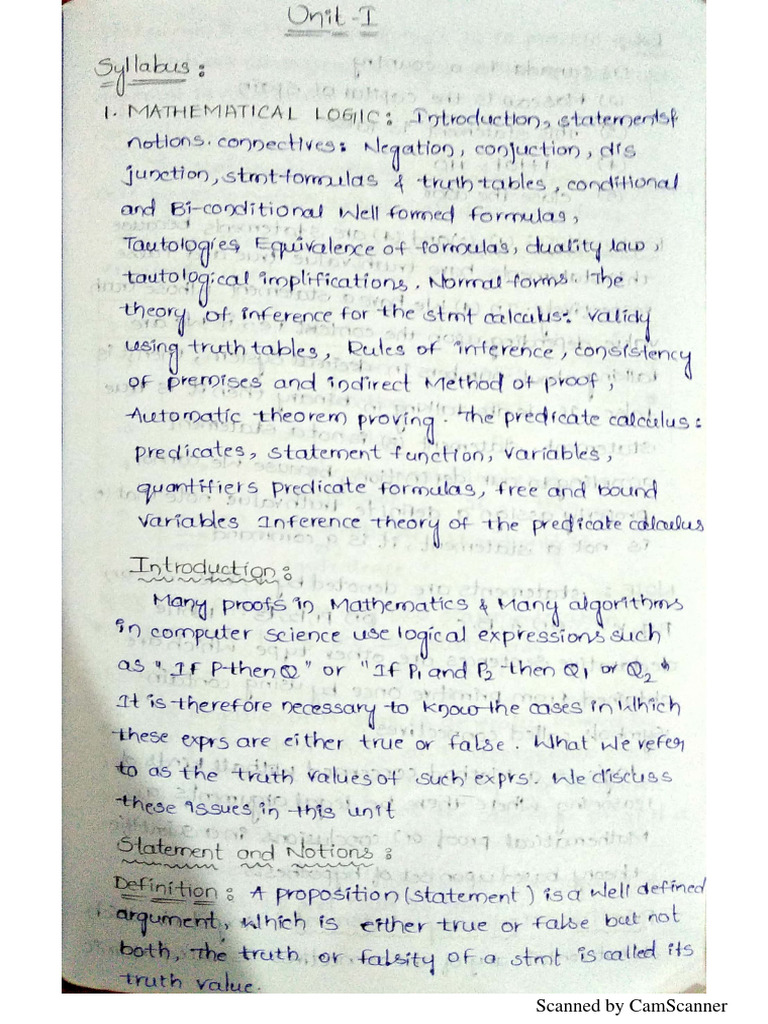 Unit-I
Syllabus:
1. MATHEMATICAL LOGIIC: Introduction, statements &
notions. connectives: Negation, conjuction, dis
junction, stmt-formulas & truth tables, conditional
and Bi-conditional Well formed formulas,
Tautologies, Equivalence of formulas, duality law,
tautological implifications. Normal forms. The
theory of inference for the stmt calculus: validy
using truth tables, Rules of interence, consistency
of premises and indirect Method of proof,
Automatic theorem proving. The predicate calculus:
predicates, statement function, variables,
quantifiers predicate formulas, free and bound
variables Inference theory of the predicate calculus
Introduction:
Many proofs in Mathematics & Many algorithms
in computer science use logical expressions such
as "If P then Q" or "If P1 and P2 then Q1 or Q2"
It is therefore necessary to know the cases in which
these exprs are either true or false. What we refer
to as the truth values of such exprs. We discuss
these issues in this unit
Statement and Notions:
Definition: A proposition (statement) is a well defined
argument, which is either true or false but not
both, The truth or falsity of a stmt is called its
truth value.
Scanned by CamScanner